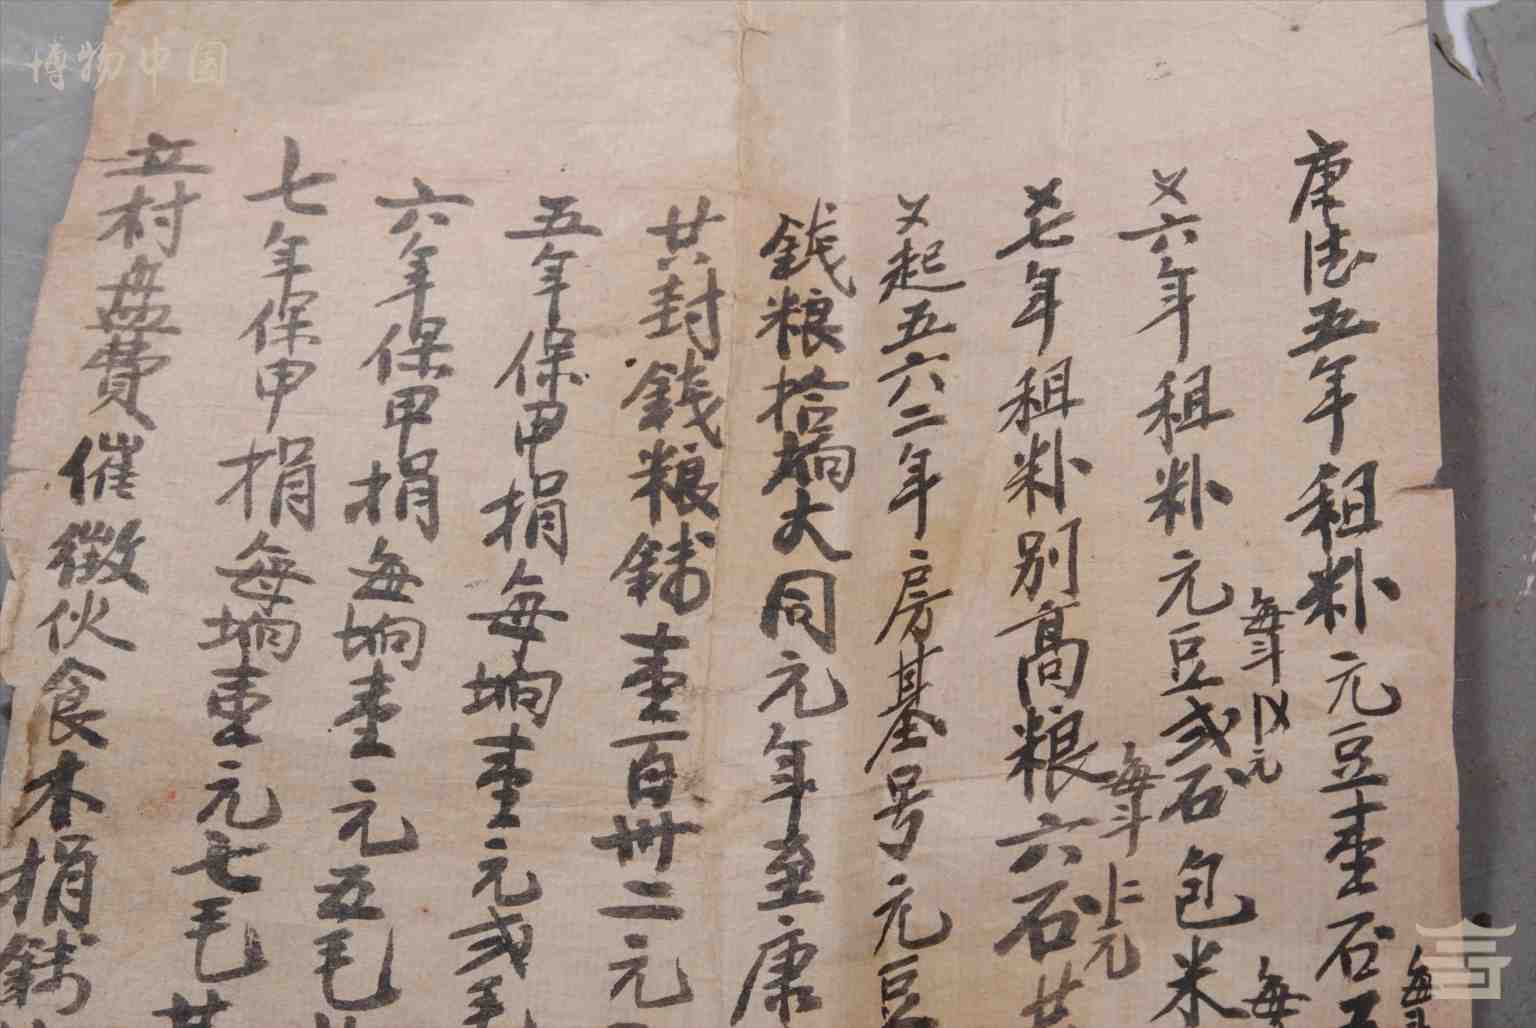 博物中国
康德五年租粆元豆壹石
每斗
元
又六年租粆元豆弍石包米
每斗
元
又七年租粆别高粮六石共
又起五六二年房基号元豆
錢粮拾垧大同元年至康
共封錢粮錢壹百卅二元
五年保甲捐每垧壹元弍毛
六年保甲捐每垧壹元五毛
七年保甲捐每垧壹元七毛共
立村盘費催徵伙食木捐錢
每
每